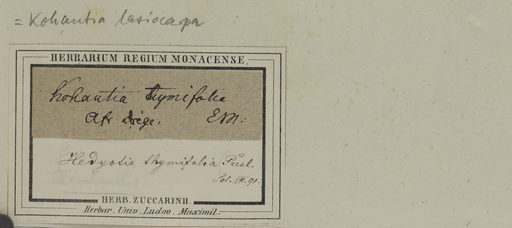 = Kohautia lasiocarpa
HERBARIUM REGIUM MONACENSE.
Kohautia thymifolia
Afr. Drège. EM:
Hedyotis thymifolia Presl.
III. 91.
HERB. ZUCCARINII.
Herbar. Univ. Ludov. Maximil.